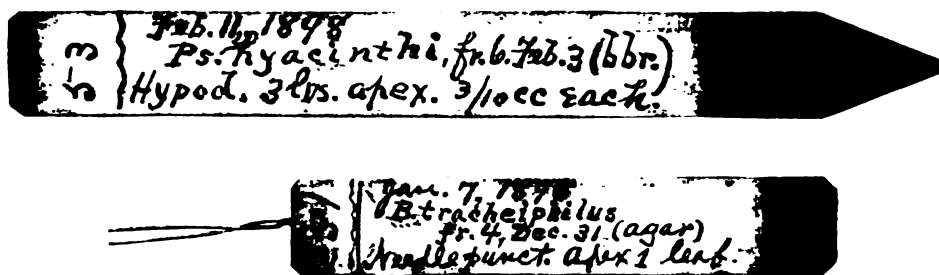 53
Feb. 11, 1898
Ps. hyacinthi, fr. b. Feb. 3 (bbr.)
Hypod. 3 lvs. apex. 3/10 cc each.
Jan. 7, 1898
B. tracheiphilus
fr. 4, Dec. 31 (agar)
Needle punct. apex 1 leaf.